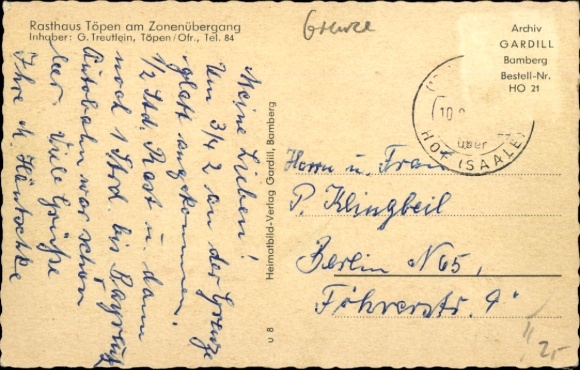 Rasthaus Töpen am Zonenübergang
Inhaber: G. Treutlein, Töpen/Ofr., Tel. 84
Grenze
Archiv
GARDILL
Bamberg
Bestell-Nr.
HO 21
10.
über
HOF (SAALE)
Meine Lieben!
Um 3/4 2 an der Grenze
glatt angekommen.
1/2 Std. Rast u. dann
noch 1 Std. bis Bayreuth
Autobahn war schön
leer. Viele Grüße
Ihre M.
Heimatbild-Verlag Gardill, Bamberg
u 8
Herrn u. Frau
P. Klingbeil
Berlin N 65,
Föhrerstr. 9
2,-